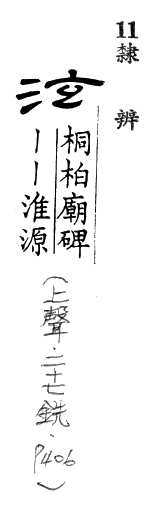 11隸辨
泫
桐柏廟碑
丨丨淮源
(上聲.二十七銑.P406)